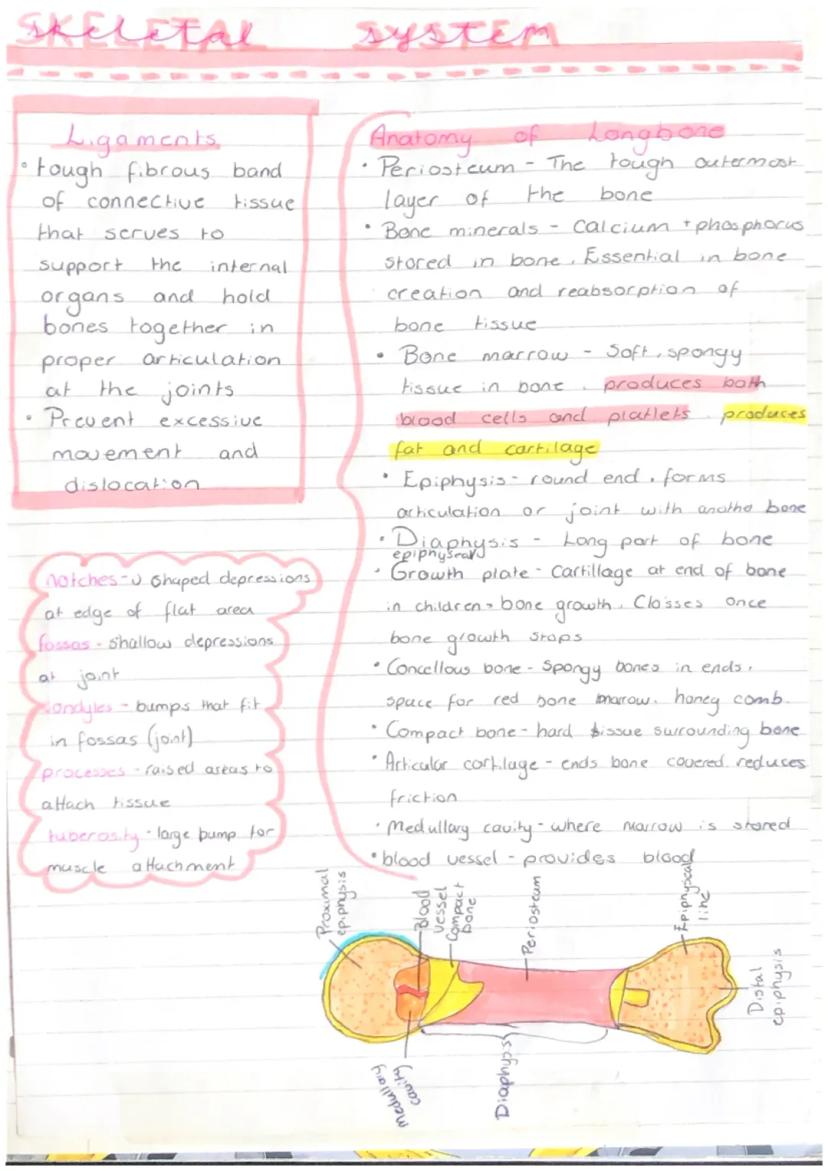 SKELETAL SYSTEM
Ligaments
• tough fibrous band
of connective tissue
that serves to
support the internal
organs and hold
bones together in
proper articulation
at the joints
• Prevent excessive
movement and
dislocation
notches - U shaped depressions
at edge of flat area
fossas - shallow depressions
at joint
condyles - bumps that fit
in fossas (joint)
processes - raised areas to
attach tissue
tuberosity - large bump for
muscle attachment
Anatomy of Longbone
• Periosteum - The tough outermost
layer of the bone
• Bone minerals - Calcium + phosphorus
stored in bone. Essential in bone
creation and reabsorption of
bone tissue
• Bone marrow - Soft, spongy
tissue in bone. produces both
blood cells and platlets. produces
fat and cartilage
• Epiphysis - round end. forms
articulation or joint with another bone
• Diaphysis - Long part of bone
epiphyseal
• Growth plate - Cartillage at end of bone
in children = bone growth. Closses once
bone growth stops
• Concellous bone - spongy bones in ends.
space for red bone marrow. honey comb.
• Compact bone - hard tissue surrounding bone
• Articular cartilage - ends bone covered reduces
friction
• Medullary cavity - where marrow is stored
• blood vessel - provides blood
Proximal
epiphysis
Blood
vessel
Compact
bone
Periosteum
Epiphyseal
line
Distal
epiphysis
Medullary
cavity
Diaphysis